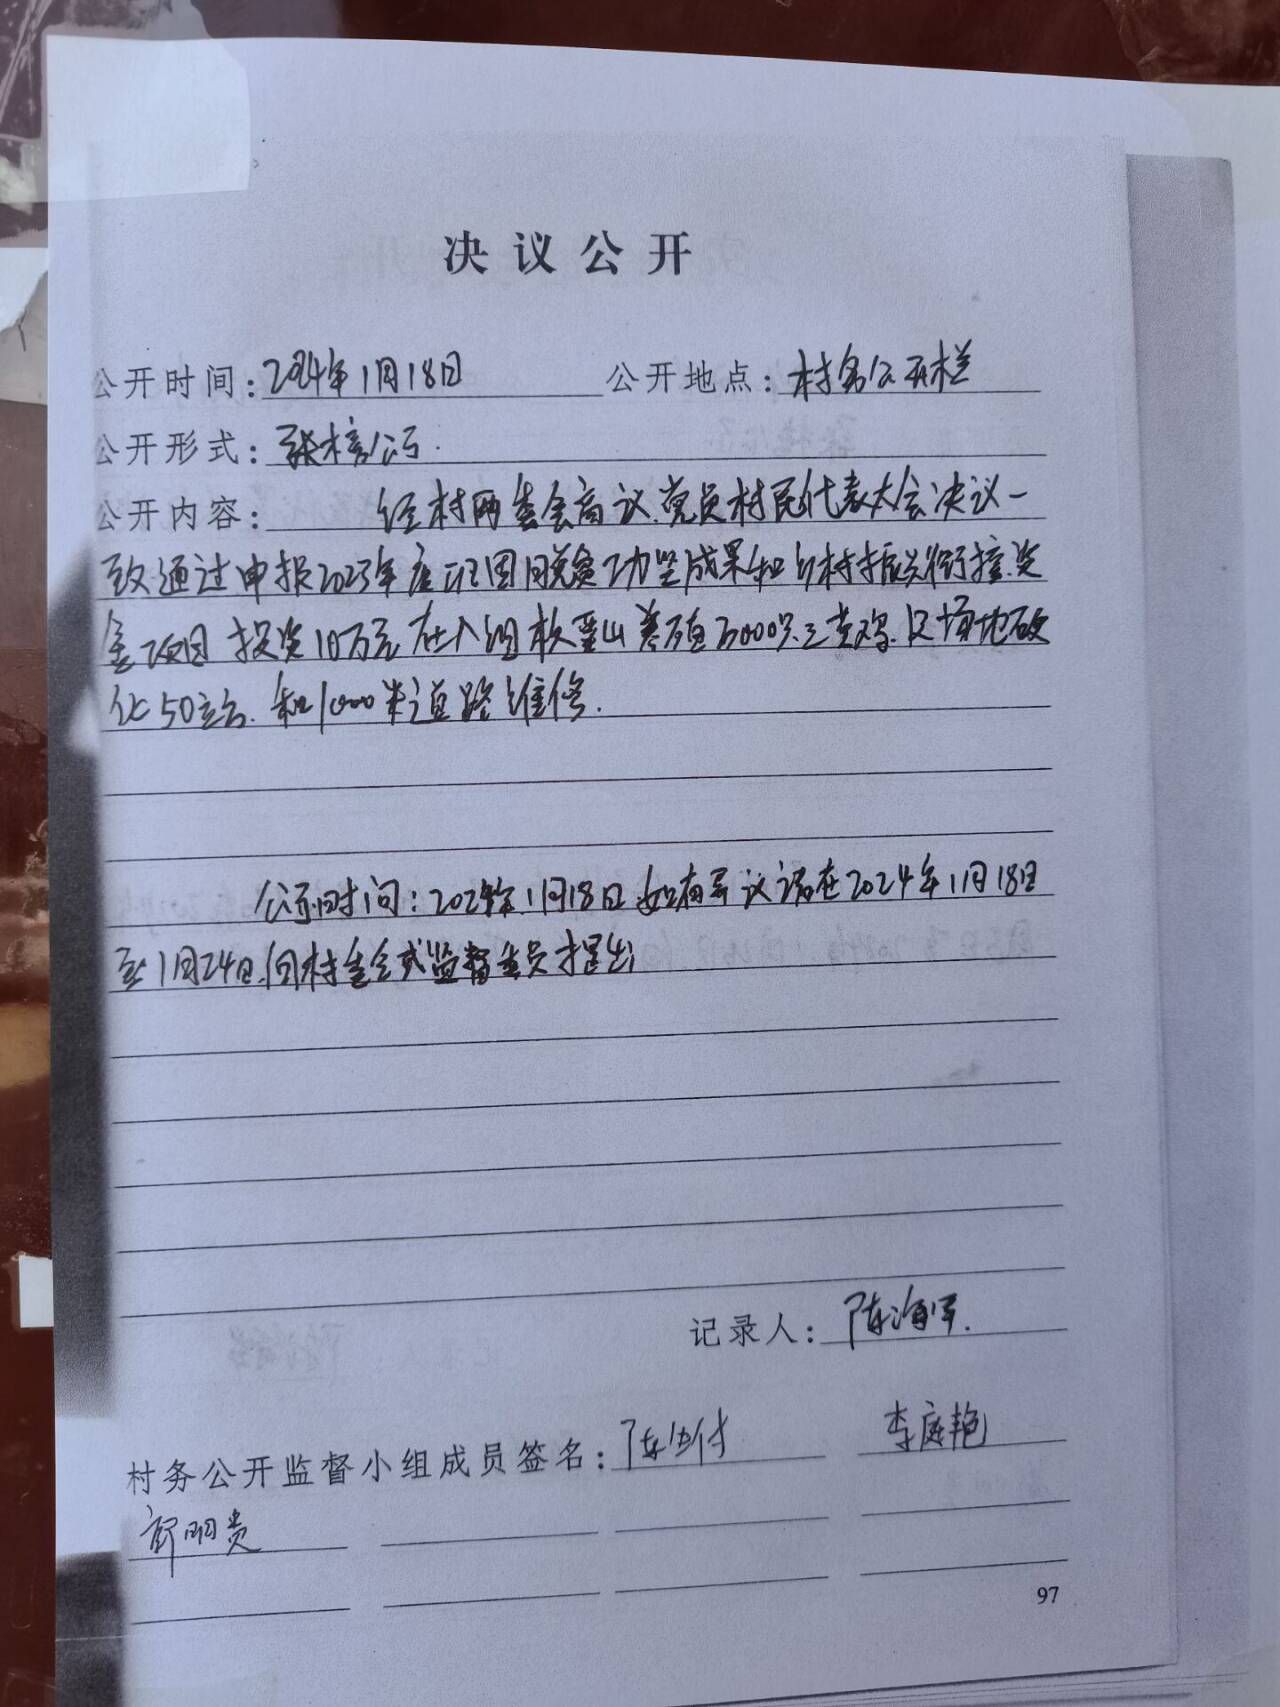 决议公开
公开时间：2024年1月18日 公开地点：村务公开栏
公开形式：张榜公示.
公开内容： 经村两委会商议.党员村民代表大会决议一
致通过申报2023年度巩固脱贫攻坚成果和乡村振兴衔接资
金项目 投资10万元 在八组 山养殖3000只三黄鸡. 场地硬
化50立方. 和1000米道路维修.
公示时间：2024年1月18日 如有异议请在2024年1月18日
至1月24日.向村委会或监督委员提出
记录人：陈海军.
村务公开监督小组成员签名：陈 付 李庭艳
郭明贵
97